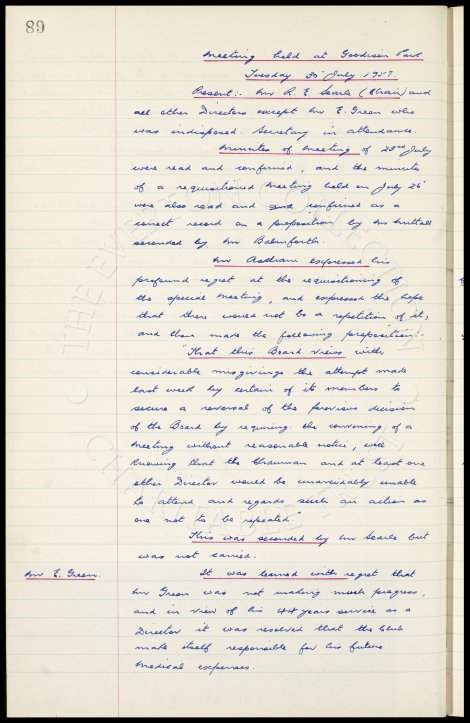 89
Meeting held at Goodison Park
Tuesday 30 July 1957.
Present:- Mr R. E. Searle (Chair) and
all other Directors except Mr E. Green who
was indisposed. Secretary in attendance.
Minutes of Meeting of 23rd July
were read and confirmed, and the minutes
of a requisitioned Meeting held on July 26
were also read and confirmed as a
correct record on a proposition by Mr Nuttall
seconded by Mr Balmforth.
Mr expressed his
profound regret at the requisitioning of
the special Meeting, and expressed the hope
that there would not be a repetition of it,
and then made the following proposition:-
"That this Board views with
considerable misgivings the attempt made
last week by certain of its members to
secure a reversal of the previous decision
of the Board by requiring the convening of a
Meeting without reasonable notice, well
knowing that the Chairman and at least one
other Director would be unavoidably unable
to attend and regards such an action as
one not to be repeated."
This was seconded by Mr Searle but
was not carried.
Mr E. Green.
It was learned with regret that
Mr Green was not making much progress,
and in view of his 44 years service as a
Director it was resolved that the Club
make itself responsible for his future
medical expenses.